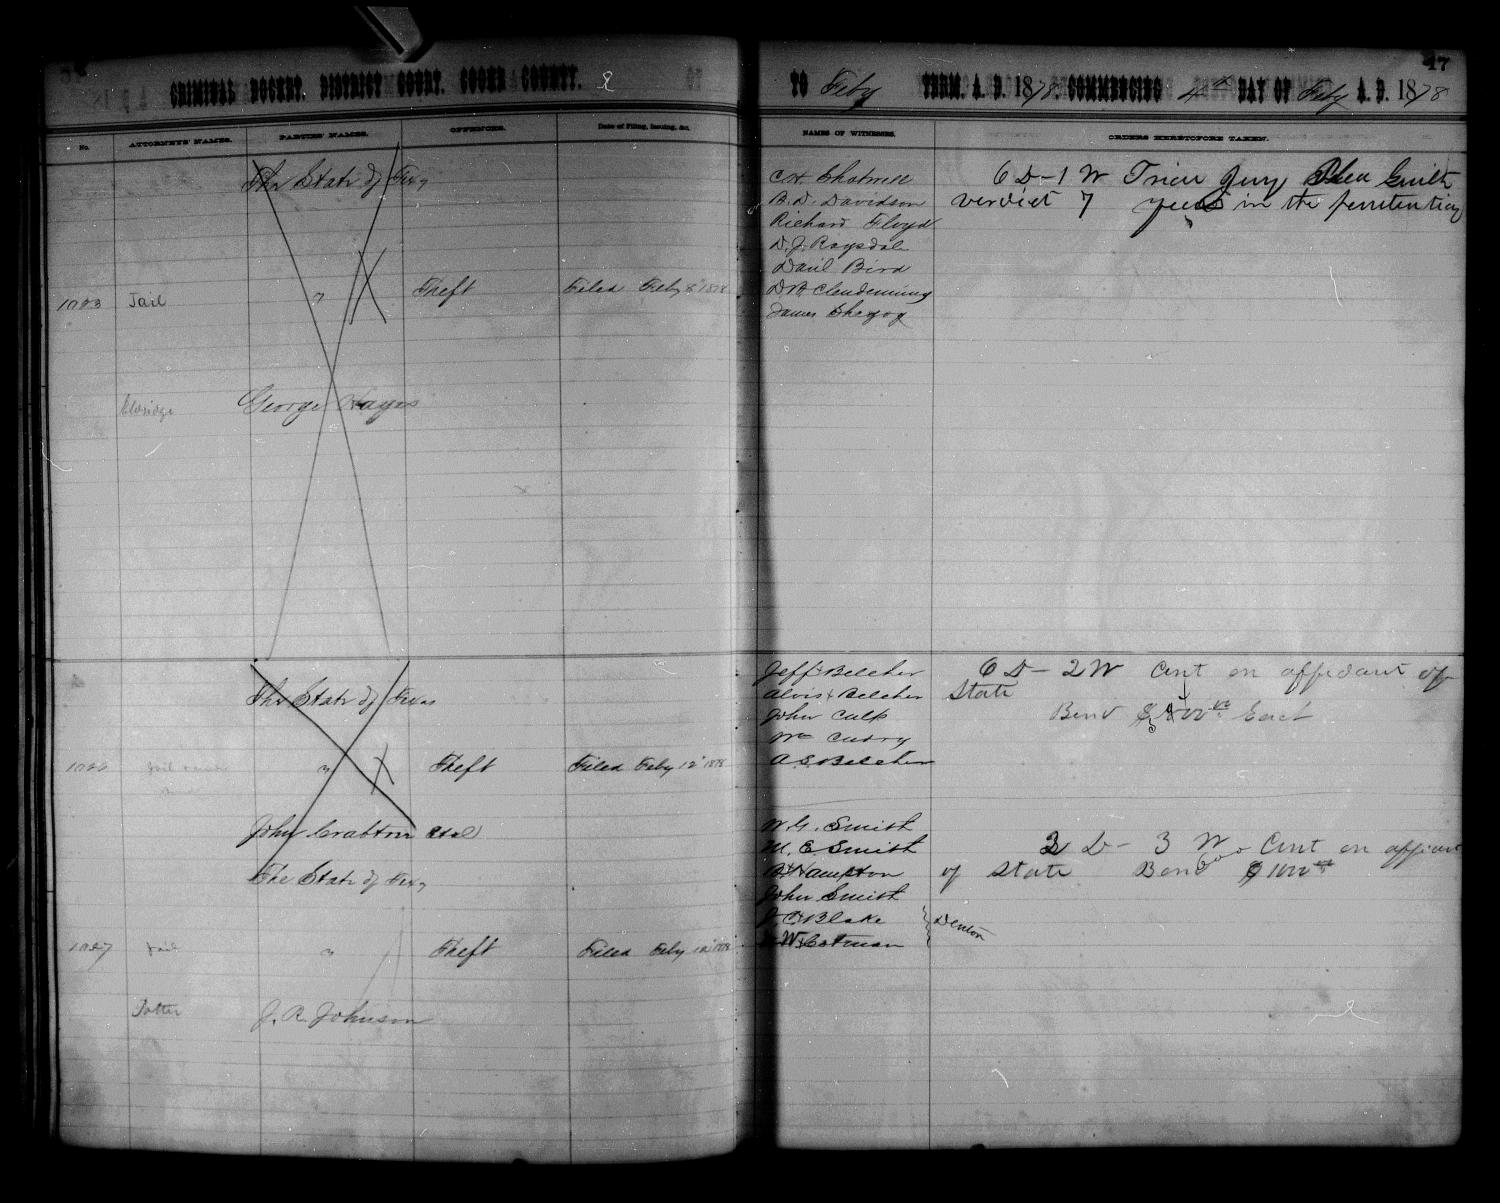 CRIMINAL DOCKET. DISTRICT COURT. COOKE COUNTY.
No. ATTORNEYS' NAMES. PARTIES' NAMES. OFFENCES. Date of Filing, Issuing, &c.
The State of Texas
Jail " Theft Filed Feby 8" 1878
Eldridge George Hayes
The State of Texas
" Theft Filed Feby 12" 1878
John Crabtree et al
The State of Texas
1027 Jail " Theft Filed Feby 12" 1878
Potter J. R. Johnson
47
TO Feby TERM. A. D. 1878. COMMENCING 4th DAY OF Feby A. D. 1878
NAMES OF WITNESSES. ORDERS HERETOFORE TAKEN.
6 D - 1 W Tried Jury Plea Guilty
B. D. Davidson verdict 7 years in the penitentiary
Richard Floyd
D. J. Ragsdale
Danl Bird
D B Clendenning
James
Jeff Belcher 6 D - 2 W Cont on affidavit of
Alvis Belcher State
John Culp Bond Each
Wm Curry
A. S. Belcher
W. G. Smith
M. E. Smith 3 D - 3 W Cont on affidavit
Hampton of State Bond
John Smith
J. C. Blake Denton
W Coatman